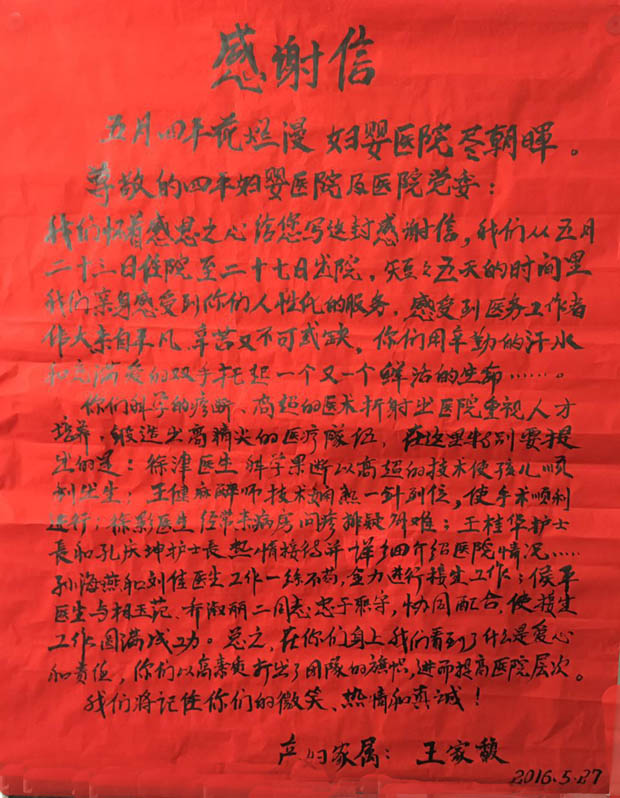 感谢信
五月四平花烂漫 妇婴医院 朝晖。
尊敬的四平妇婴医院及医院党委：
我们怀着感恩之心给您写这封感谢信，我们从五月
二十三日住院至二十七日出院，短短五天的时间里
我们亲身感受到你们人性化的服务，感受到医务工作者
伟大来自平凡、辛苦又不可或缺，你们用辛勤的汗水
和充满爱的双手托起一个又一个鲜活的生命……。
你们科学的诊断、高超的医术折射出医院重视人才
培养、锻造出高精尖的医疗队伍，在这里特别要提
出的是：徐津医生科学果断以高超的技术使孩儿顺
利出生；王健麻醉师技术娴熟一针到位，使手术顺利
进行；徐影医生经常来病房问诊排疑解难；王桂华护士
長和孔庆坤护士長热情接待并详细介绍医院情况……
孙海燕和刘佳医生工作一丝不苟，全力进行接生工作；侯平
医生与相玉范、乔淑丽二同志忠于职守，协同配合，使接生
工作圆满成功。总之，在你们身上我们看到了什么是爱心
和责任，你们以高素质打出了团队的旗帜，进而提高医院层次。
我们将记住你们的微笑、热情和真诚！
产妇家属：王家馥
2016.5.27